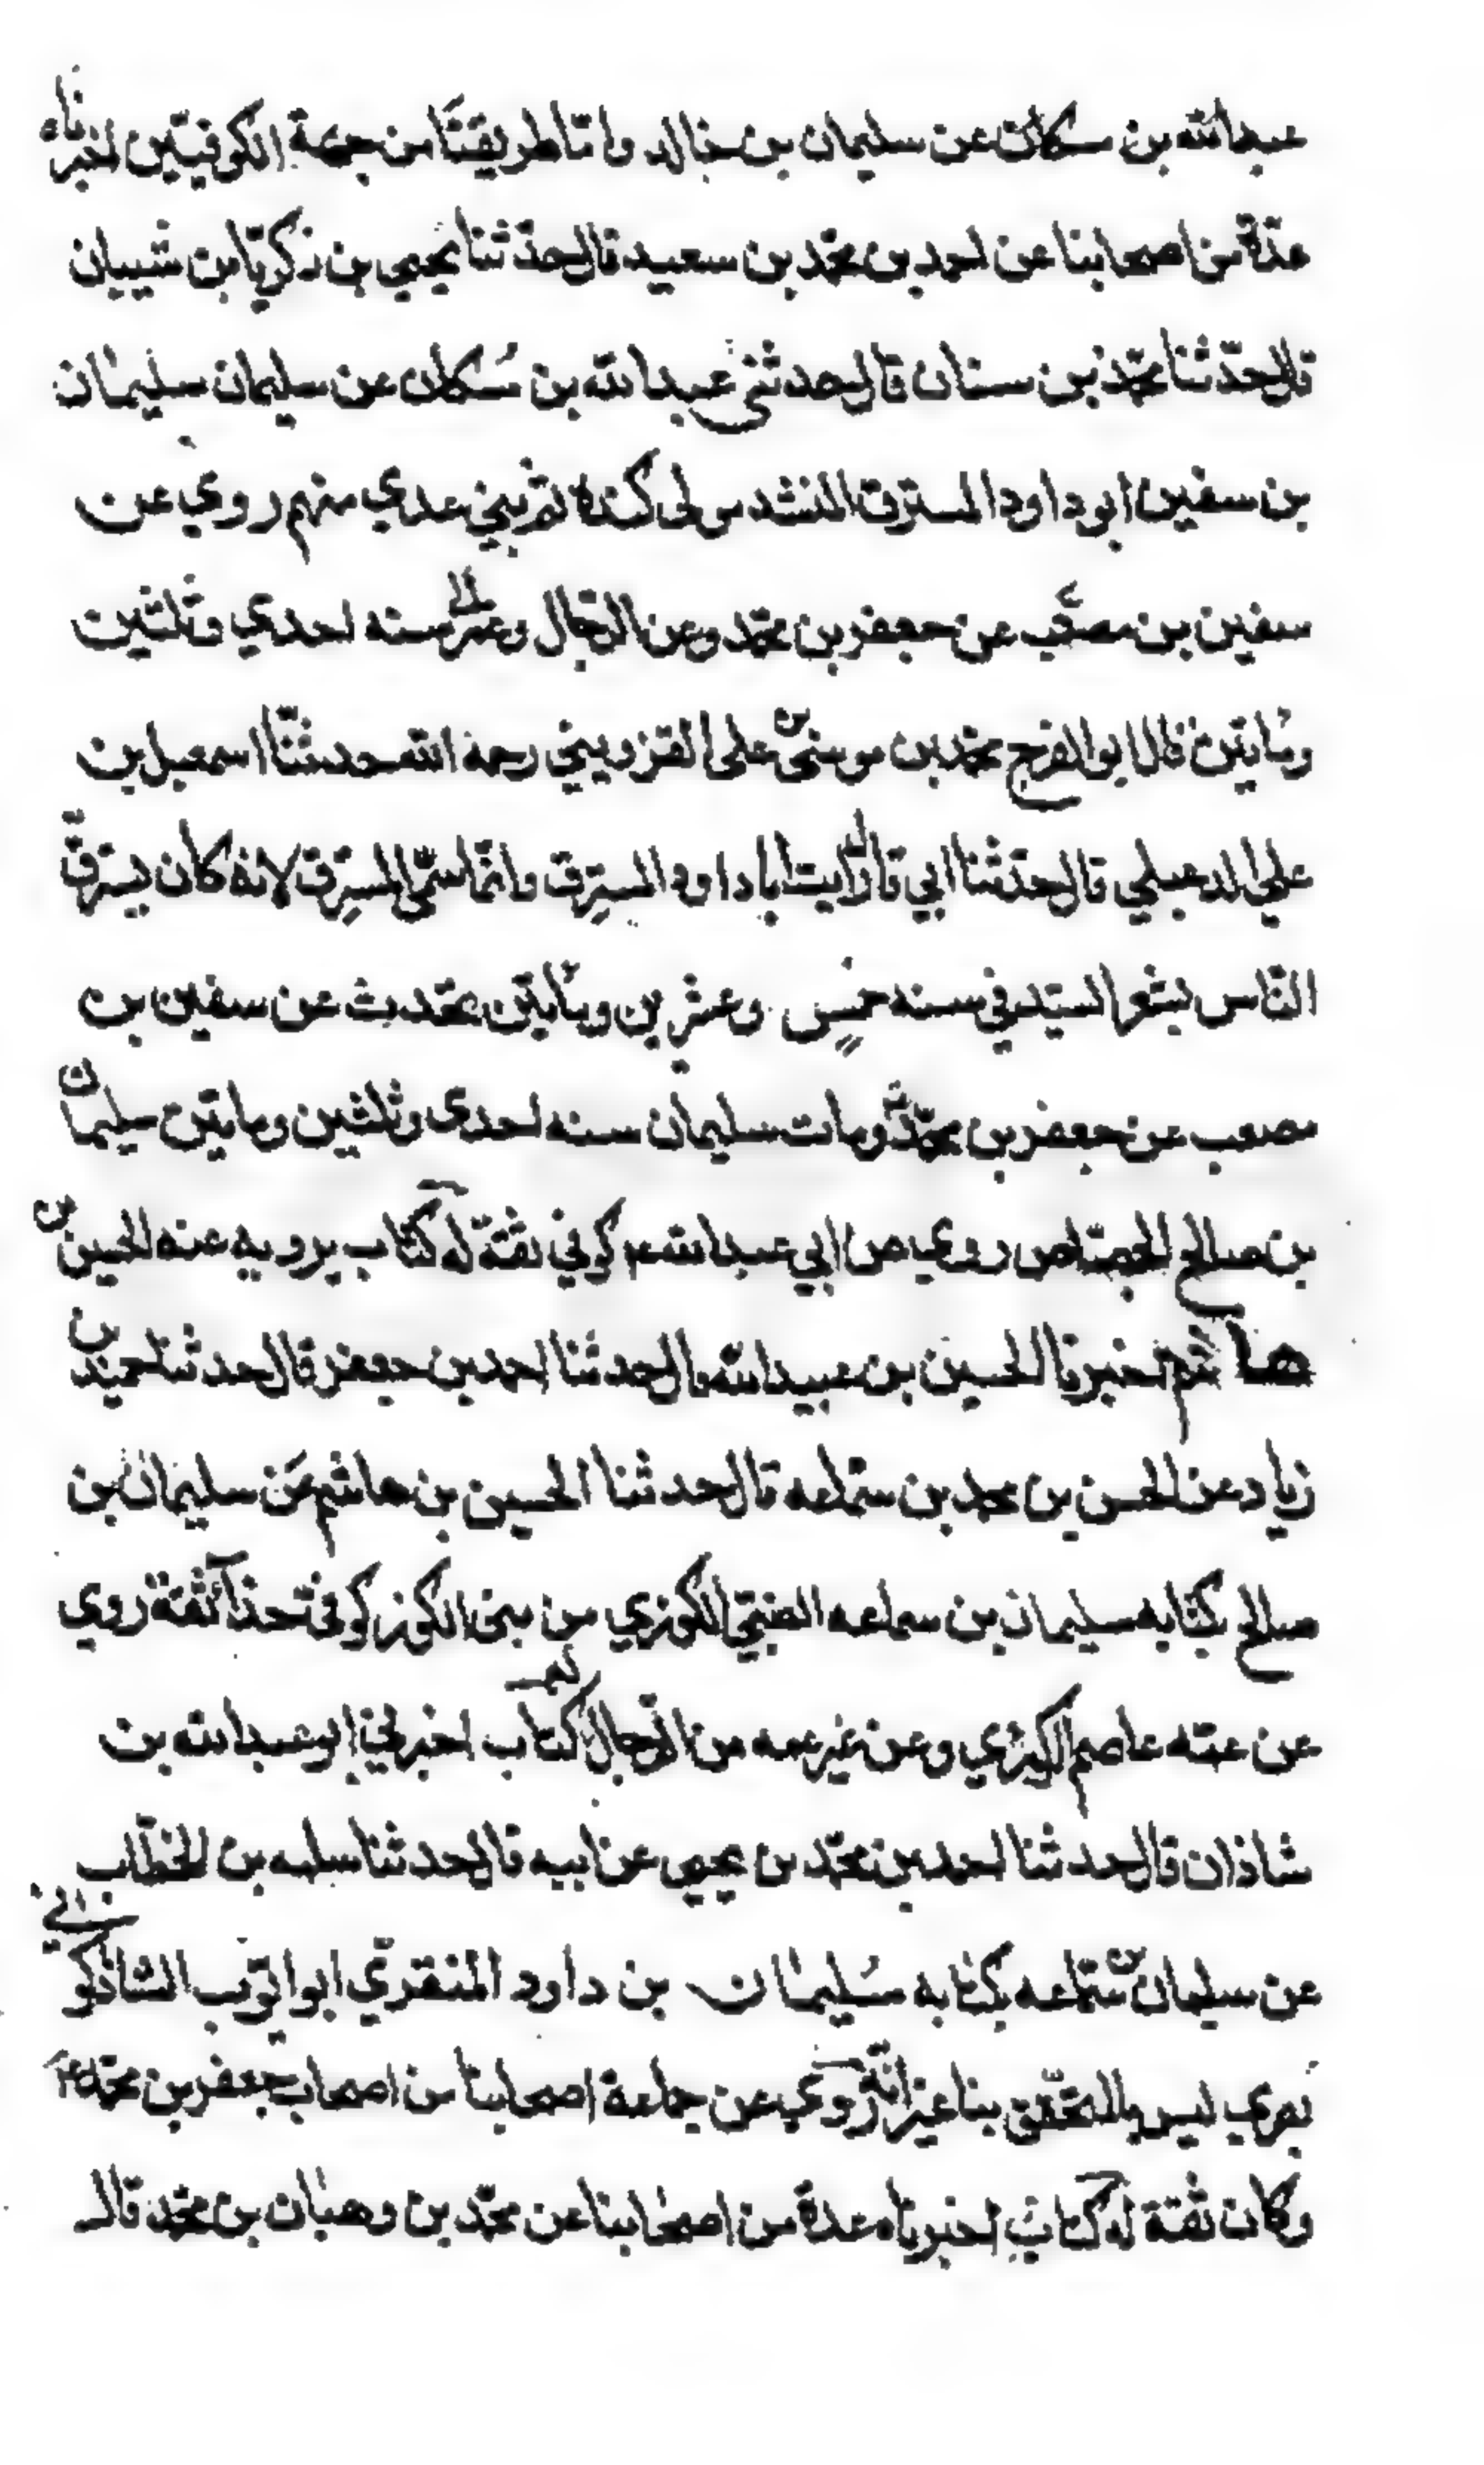 عبدالله بن سكان عن سليمان بن خالد واما طريقتنا من جهة الكوفيين اخبرناه
عدة من اصحابنا عن احمد بن محمد بن سعيد قال حدثنا يحيى بن زكريا بن شيبان
قال حدثنا محمد بن سنان قال حدثني عبدالله بن سُكان عن سليمان سليمان
بن سفين ابو داود المسترق المنشد مولى كنده ثم بني عدي منهم روي عن
سفين بن مصعب عن جعفر بن محمد وعن الرجال وعمر الى سنه احدي وثلثين
ومايتين قال ابو الفرج محمد بن موسى بن على القزويني رحمه الله حدثنا اسمعيل بن
علي الدعبلي قال حدثنا ابي قال رايت ابا داود المسترق وانما سمى المسترق لانه كان يسترق
الناس بشعر السيد في سنه خمس وعشرين ومايتين يحدث عن سفين بن
مصعب عن جعفر بن محمد ومات سليمان سنه احدى وثلثين ومايتين سليمان
بن صالح الجصاص روي عن ابي عبدالله ع كوفي ثقة له كتاب يرويه عنه الحسين بن
هاشم اخبرنا الحسين بن عبيدالله قال حدثنا احمد بن جعفر قال حدثنا حميد بن
زياد عن الحسن بن محمد بن سماعه قال حدثنا الحسين بن هاشم عن سليمان بن
صالح بكتابه سليمان بن سماعه الضبي الكوزي من بنى الكوز كوفى حذآ ثقة روي
عن عمه عاصم الكوزي وعن غير عمه من الرجال له كتاب اخبرني ابو عبدالله بن
شاذان قال حدثنا احمد بن محمد بن يحيى عن ابيه قال حدثنا سلمه بن الخطاب
عن سليمان بن سماعه بكتابه سُليمان بن داود المنقري ابو ايوب الشاذكوني
بصري ليس بالمتحقق بنا غير انه روي عن جماعة اصحابنا من اصحاب جعفر بن محمد ع
وكان ثقة له كتاب اخبرناه عدة من اصحابنا عن محمد بن وهبان بن محمد قال